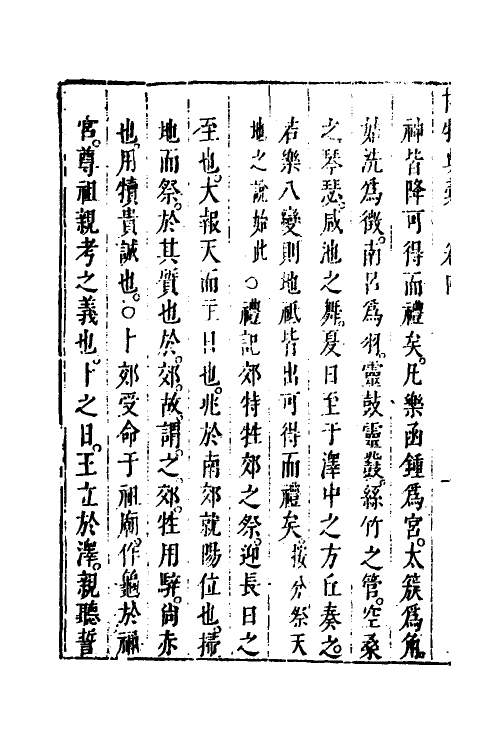 神皆降可得而禮矣。凡樂函鍾爲宮。太簇爲角。
姑洗爲徵。南呂爲羽。靈鼓靈鼗。絲竹之管。空桑
之琴瑟。咸池之舞。夏日至于澤中之方丘奏之。
若樂八變則地祗皆出可得而禮矣按分祭天
地之說始此○禮記郊特牲郊之祭。迎長日之
至也。大報天而主日也。兆於南郊就陽位也。掃
地而祭。於其質也於郊。故謂。之郊。牲用騂。尚赤
也。用犢貴誠也。○卜郊受命于祖廟。作龜於禰
宮。尊祖親考之義也。卜之日。王立於澤。親聽誓